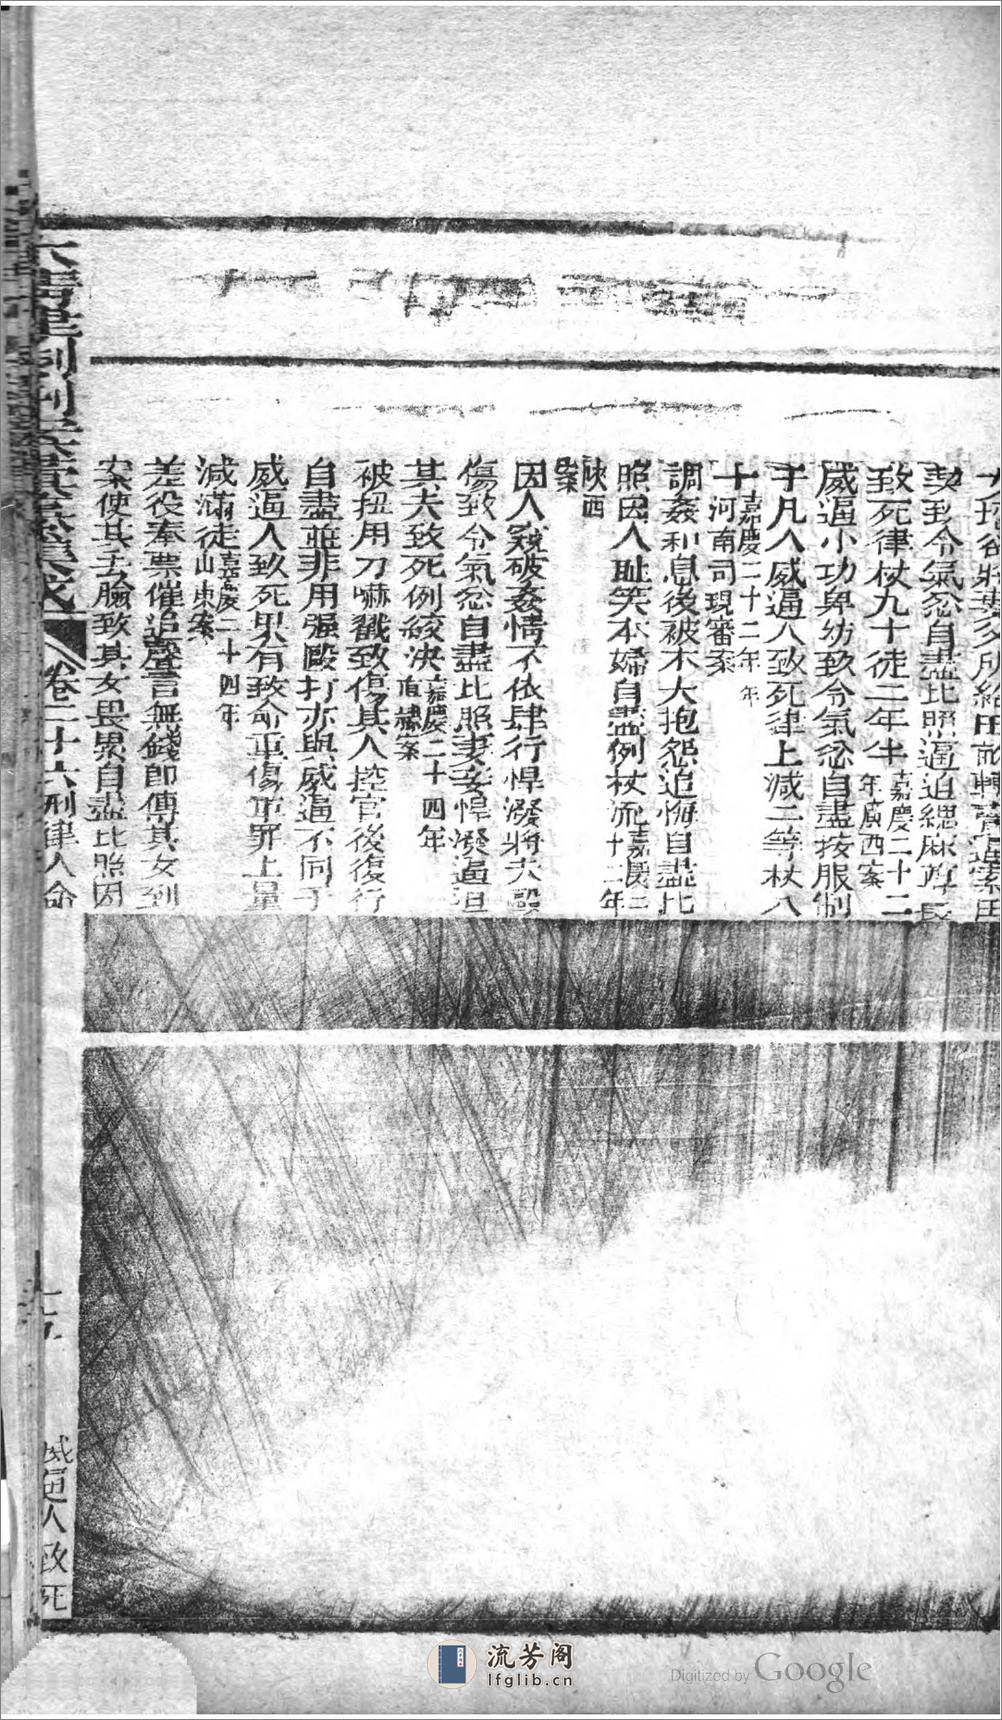 契致令氣忿自盡比照逼迫緦麻尊長
致死律杖九十徒二年半嘉慶二十二年廣西案
威逼小功卑幼致令氣忿自盡按服制
于凡人威逼人致死律上減二等杖八
十嘉慶二十二年河南司現審案
調姦和息後被本夫抱怨追悔自盡比
照因人恥笑本婦自盡例杖流嘉慶二十二年陝西
案
因人窺破姦情不依肆行悍潑將夫毆
傷致令氣忿自盡比照妻妾悍潑逼迫
其夫致死例絞決嘉慶二十四年直隸案
被扭用刀嚇戳致傷其人控官後復行
自盡並非用强毆打亦與威逼不同于
威逼人致死果有致命重傷軍罪上量
減滿徒嘉慶二十四年山東案
差役奉票催追聲言無錢即傳其女到
案使其丟臉致其女畏累自盡比照因
卷二十六刑律人命
威逼人致死
流芳阁
lfglib.cn
Digitized by Google